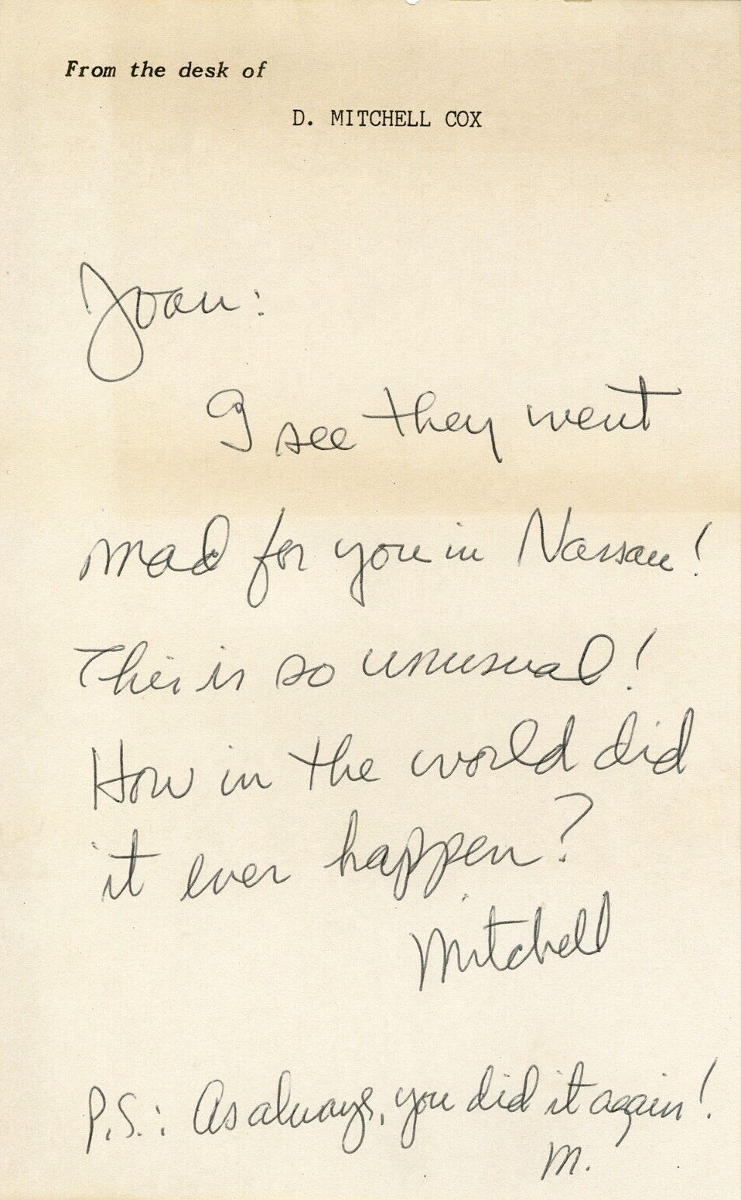 From the desk of
D. MITCHELL COX
Joan:
I see they went
mad for you in Nassau!
This is so unusual!
How in the world did
it ever happen?
Mitchell
P.S.: As always, you did it again!
M.